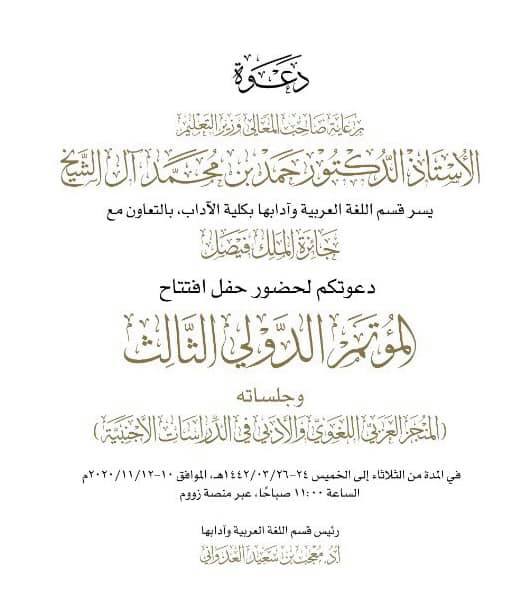 دَعْوَة
برعاية صاحب المعالي وزير التعليم
الأستاذ الدكتور حمد بن محمد آل الشيخ
يسر قسم اللغة العربية وآدابها بكلية الآداب، بالتعاون مع
جائزة الملك فيصل
دعوتكم لحضور حفل افتتاح
المؤتمر الدولي الثالث
وجلساته
(المنجز العربي اللغوي والأدبي في الدراسات الأجنبية)
في المدة من الثلاثاء إلى الخميس ٢٤-١٤٤٢/٠٣/٢٦هـ، الموافق ١٠-٢٠٢٠/١١/١٢م
الساعة ١١:٠٠ صباحًا، عبر منصة زووم
رئيس قسم اللغة العربية وآدابها
أ.د. معجب بن سعيد العدواني